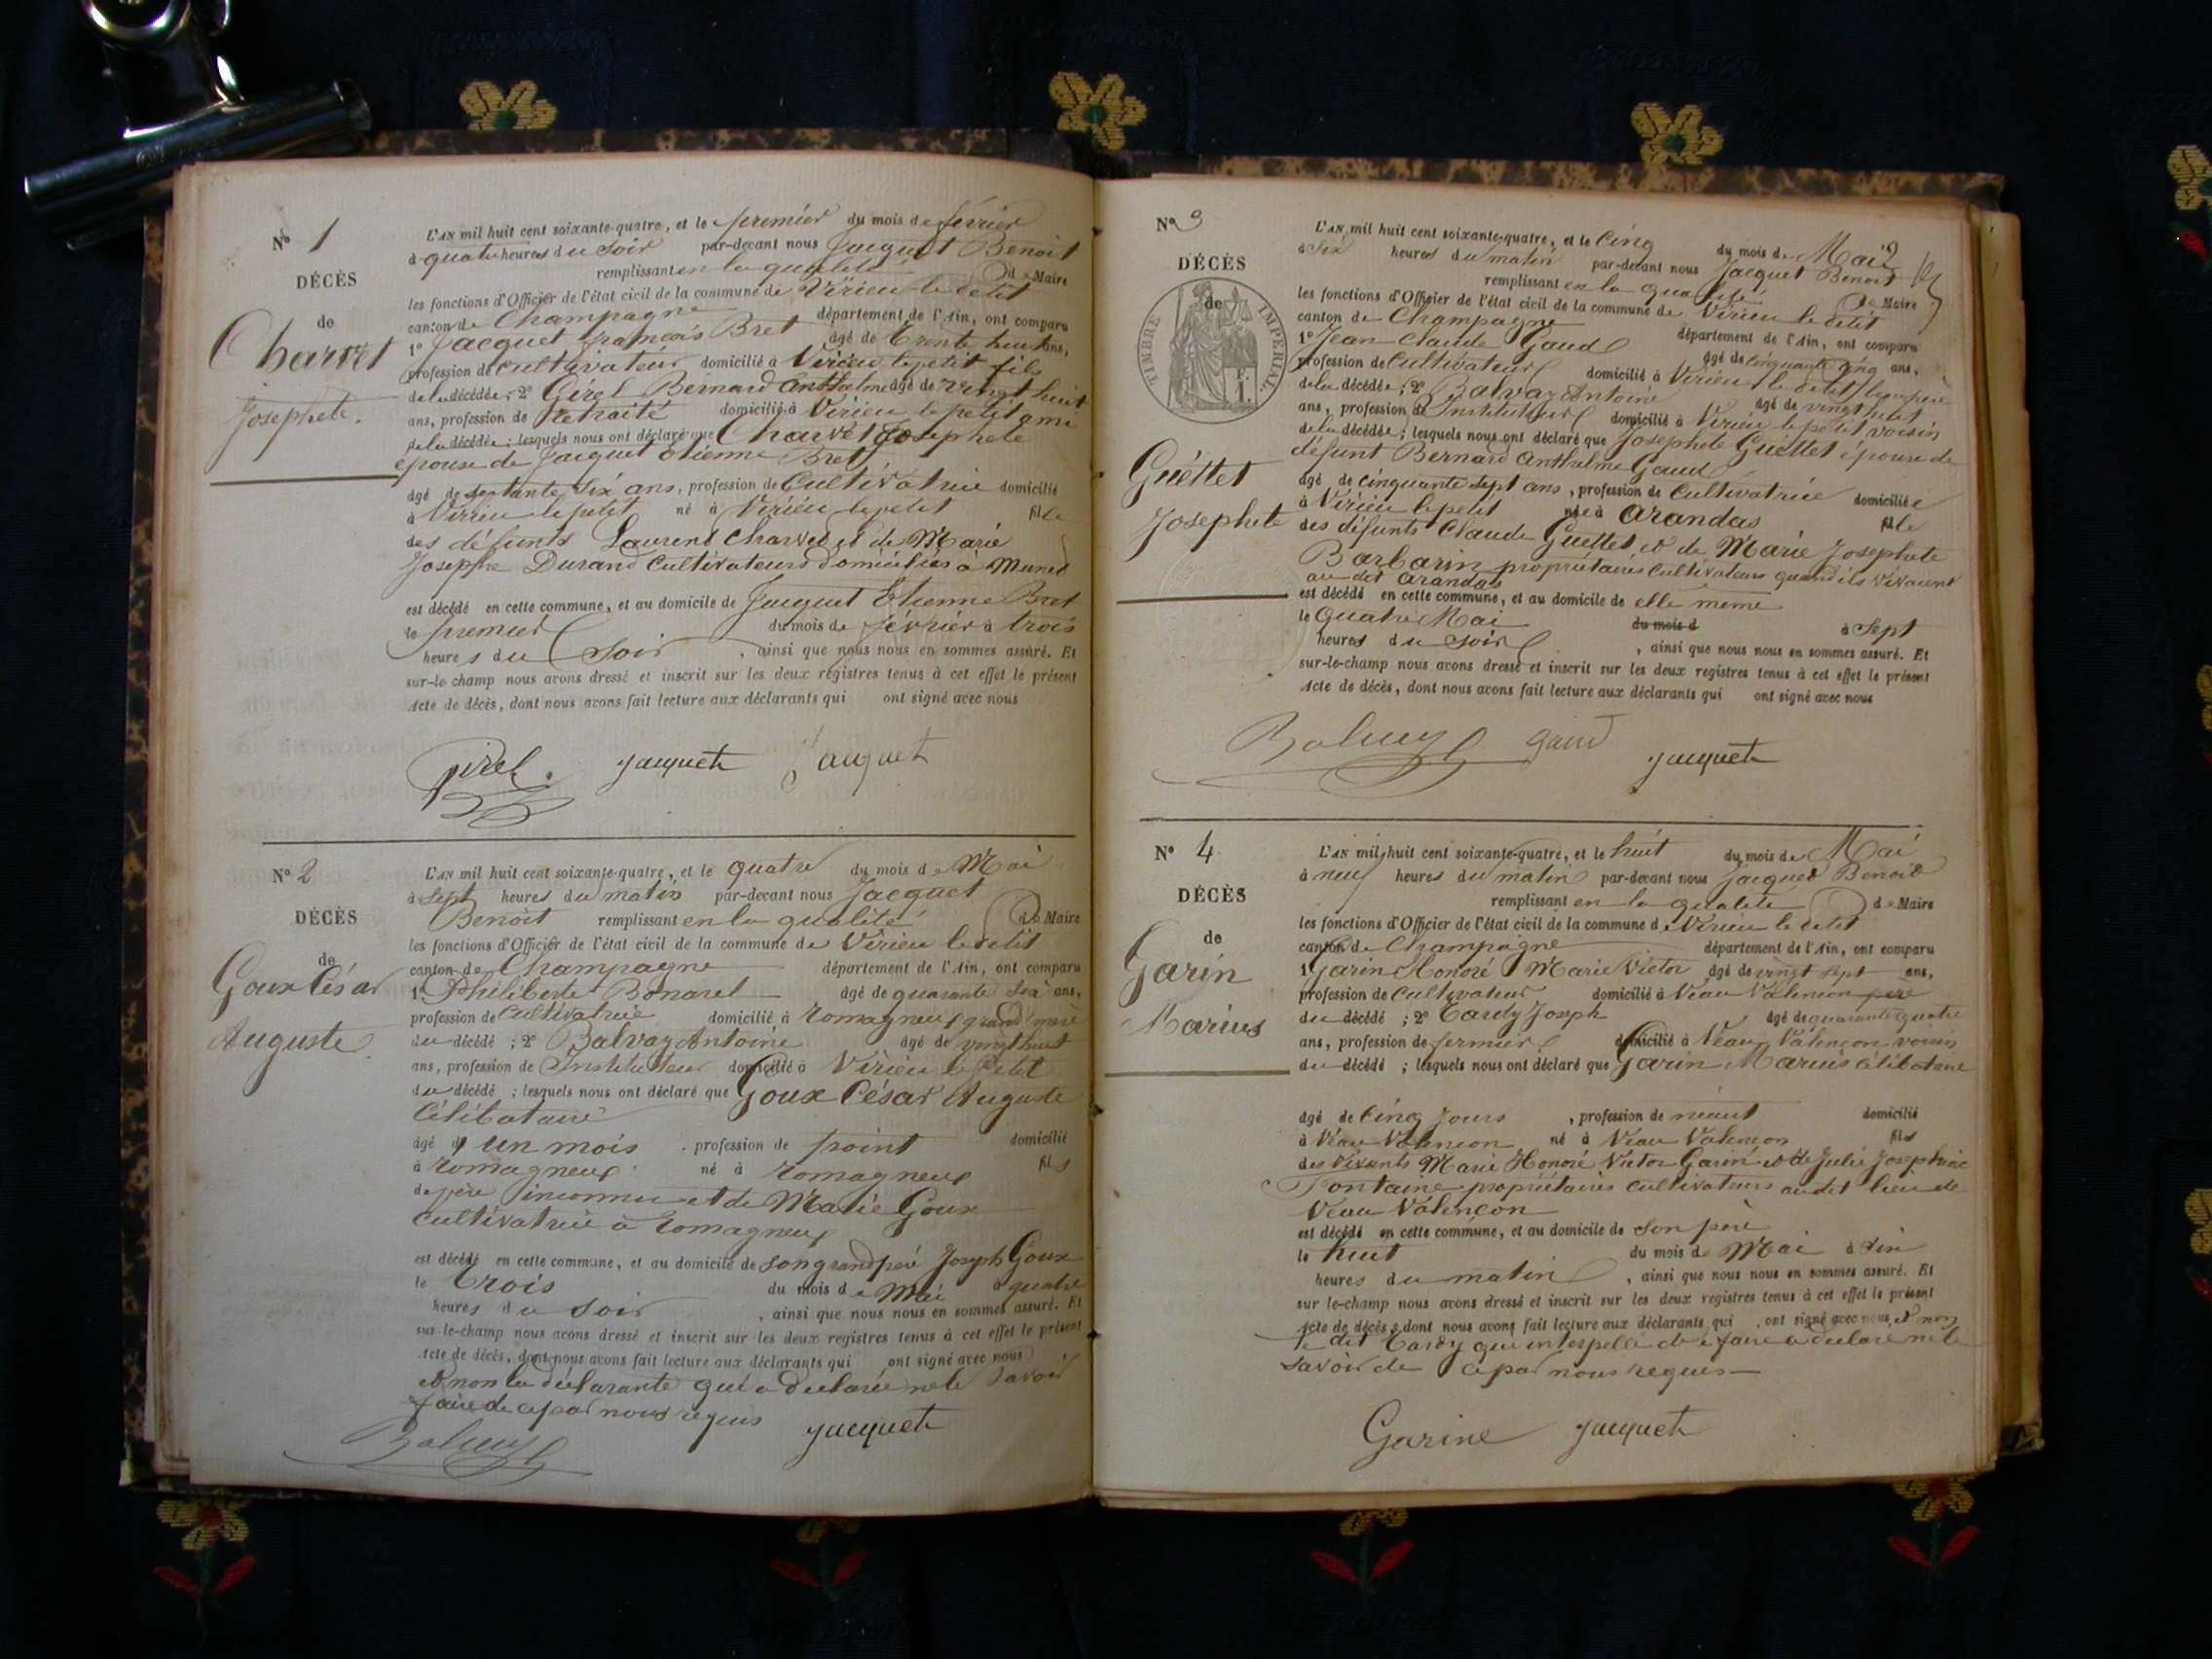 N° 1
DÉCÈS
de
Charvet
Josephete.
L'AN mil huit cent soixante-quatre, et le premier du mois de février
à quatre heures du soir par-devant nous Jacquet Benoit
remplissant en la qualité de Maire
les fonctions d'Officier de l'état civil de la commune de Virieu le petit
canton de Champagne département de l'Ain, ont comparu
1° Jacquet François Bret âgé de trente huit ans,
profession de cultivateur domicilié à Virieu le petit fils
de la décédée; 2° Girel Bernard Anthelme âgé de vingt huit
ans, profession de Retraité domicilié à Virieu le petit ami
de la décédée; lesquels nous ont déclaré que Charvet Josephete
épouse de Jacquet Etienne Bret
âgé de septante six ans, profession de Cultivatrice domicilié
à Virieu le petit né à Virieu le petit fille
des défunts Laurent Charvet et de Marie
Josephe Durand Cultivateurs domiciliés à Munet
est décédé en cette commune, et au domicile de Jacquet Etienne Bret
le premier du mois de février à trois
heures du soir, ainsi que nous nous en sommes assuré. Et
sur-le-champ nous avons dressé et inscrit sur les deux registres tenus à cet effet le présent
Acte de décès, dont nous avons fait lecture aux déclarants qui ont signé avec nous
Girel. Jacquet Jacquet
N° 2
DÉCÈS
de
Goux César
Auguste
L'AN mil huit cent soixante-quatre, et le quatre du mois de Mai
à sept heures du matin par-devant nous Jacquet
Benoit remplissant en la qualité de Maire
les fonctions d'Officier de l'état civil de la commune de Virieu le petit
canton de Champagne département de l'Ain, ont comparu
1° Philiberte Bonarel âgé de quarante six ans,
profession de Cultivatrice domicilié à Romagneux grand mère
du décédé; 2° Balvay Antoine âgé de vingt huit
ans, profession de Instituteur domicilié à Virieu le Petit
du décédé; lesquels nous ont déclaré que Goux César Auguste
Célibataire
âgé d' un mois, profession de point domicilié
à Romagneux né à Romagneux fils
de père inconnu et de Marie Goux
cultivatrice à Romagneux
est décédé en cette commune, et au domicile de son grand père Joseph Goux
le trois du mois de Mai à quatre
heures du soir, ainsi que nous nous en sommes assuré. Et
sur-le-champ nous avons dressé et inscrit sur les deux registres tenus à cet effet le présent
Acte de décès, dont nous avons fait lecture aux déclarants qui ont signé avec nous
et non la déclarante qui a déclarée ne le savoir
faire de ce par nous requis
Balvay Jacquet
N° 3
DÉCÈS
de
TIMBRE IMPERIAL.
Guéttet
Josephete
L'AN mil huit cent soixante-quatre, et le cinq du mois de Mai
à six heures du matin par-devant nous Jacquet Benoit
remplissant en la qualité de Maire
les fonctions d'Officier de l'état civil de la commune de Virieu le petit
canton de Champagne département de l'Ain, ont comparu
1° Jean Claude Gaud âgé de cinquante cinq ans,
profession de Cultivateur domicilié à Virieu le petit beau père
de la décédée; 2° Balvay Antoine âgé de vingt huit
ans, profession de Instituteur domicilié à Virieu le petit voisin
de la décédée; lesquels nous ont déclaré que Josephete Guéttet épouse de
défunt Bernard Anthelme Gaud
âgé de cinquante sept ans, profession de Cultivatrice domiciliée
à Virieu le petit née à Arandas fille
des défunts Claude Guettet et de Marie Josephete
Barbarin propriétaires cultivateurs quand ils vivaient
au dit Arandas
est décédé en cette commune, et au domicile de elle même
le quatre Mai du mois d à sept
heures du soir, ainsi que nous nous en sommes assuré. Et
sur-le-champ nous avons dressé et inscrit sur les deux registres tenus à cet effet le présent
Acte de décès, dont nous avons fait lecture aux déclarants qui ont signé avec nous
Balvay gaud Jacquet
N° 4
DÉCÈS
de
Garin
Marius
L'AN mil huit cent soixante-quatre, et le huit du mois de Mai
à neuf heures du matin par-devant nous Jacquet Benoit
remplissant en la qualité de Maire
les fonctions d'Officier de l'état civil de la commune de Virieu le petit
canton de Champagne département de l'Ain, ont comparu
1° Garin Honoré Marie Victor âgé de vingt sept ans,
profession de Cultivateur domicilié à Veau Valencon père
du décédé; 2° Tardy Joseph âgé de quarante quatre
ans, profession de fermier domicilié à Veau Valencon voisin
du décédé; lesquels nous ont déclaré que Garin Marius célibataire
âgé de cinq jours, profession de néant domicilié
à Veau Valencon né à Veau Valencon fils
des vivants Marie Honoré Victor Garin et de Julie Josephine
Fontaine propriétaires cultivateurs au dit lieu de
Veau Valencon
est décédé en cette commune, et au domicile de son père
le huit du mois de Mai à six
heures du matin, ainsi que nous nous en sommes assuré. Et
sur le-champ nous avons dressé et inscrit sur les deux registres tenus à cet effet le présent
Acte de décès, dont nous avons fait lecture aux déclarants qui ont signé avec nous et non
le dit Tardy qui interpellé de ce faire a déclaré ne le
savoir de ce par nous requis
Garine Jacquet